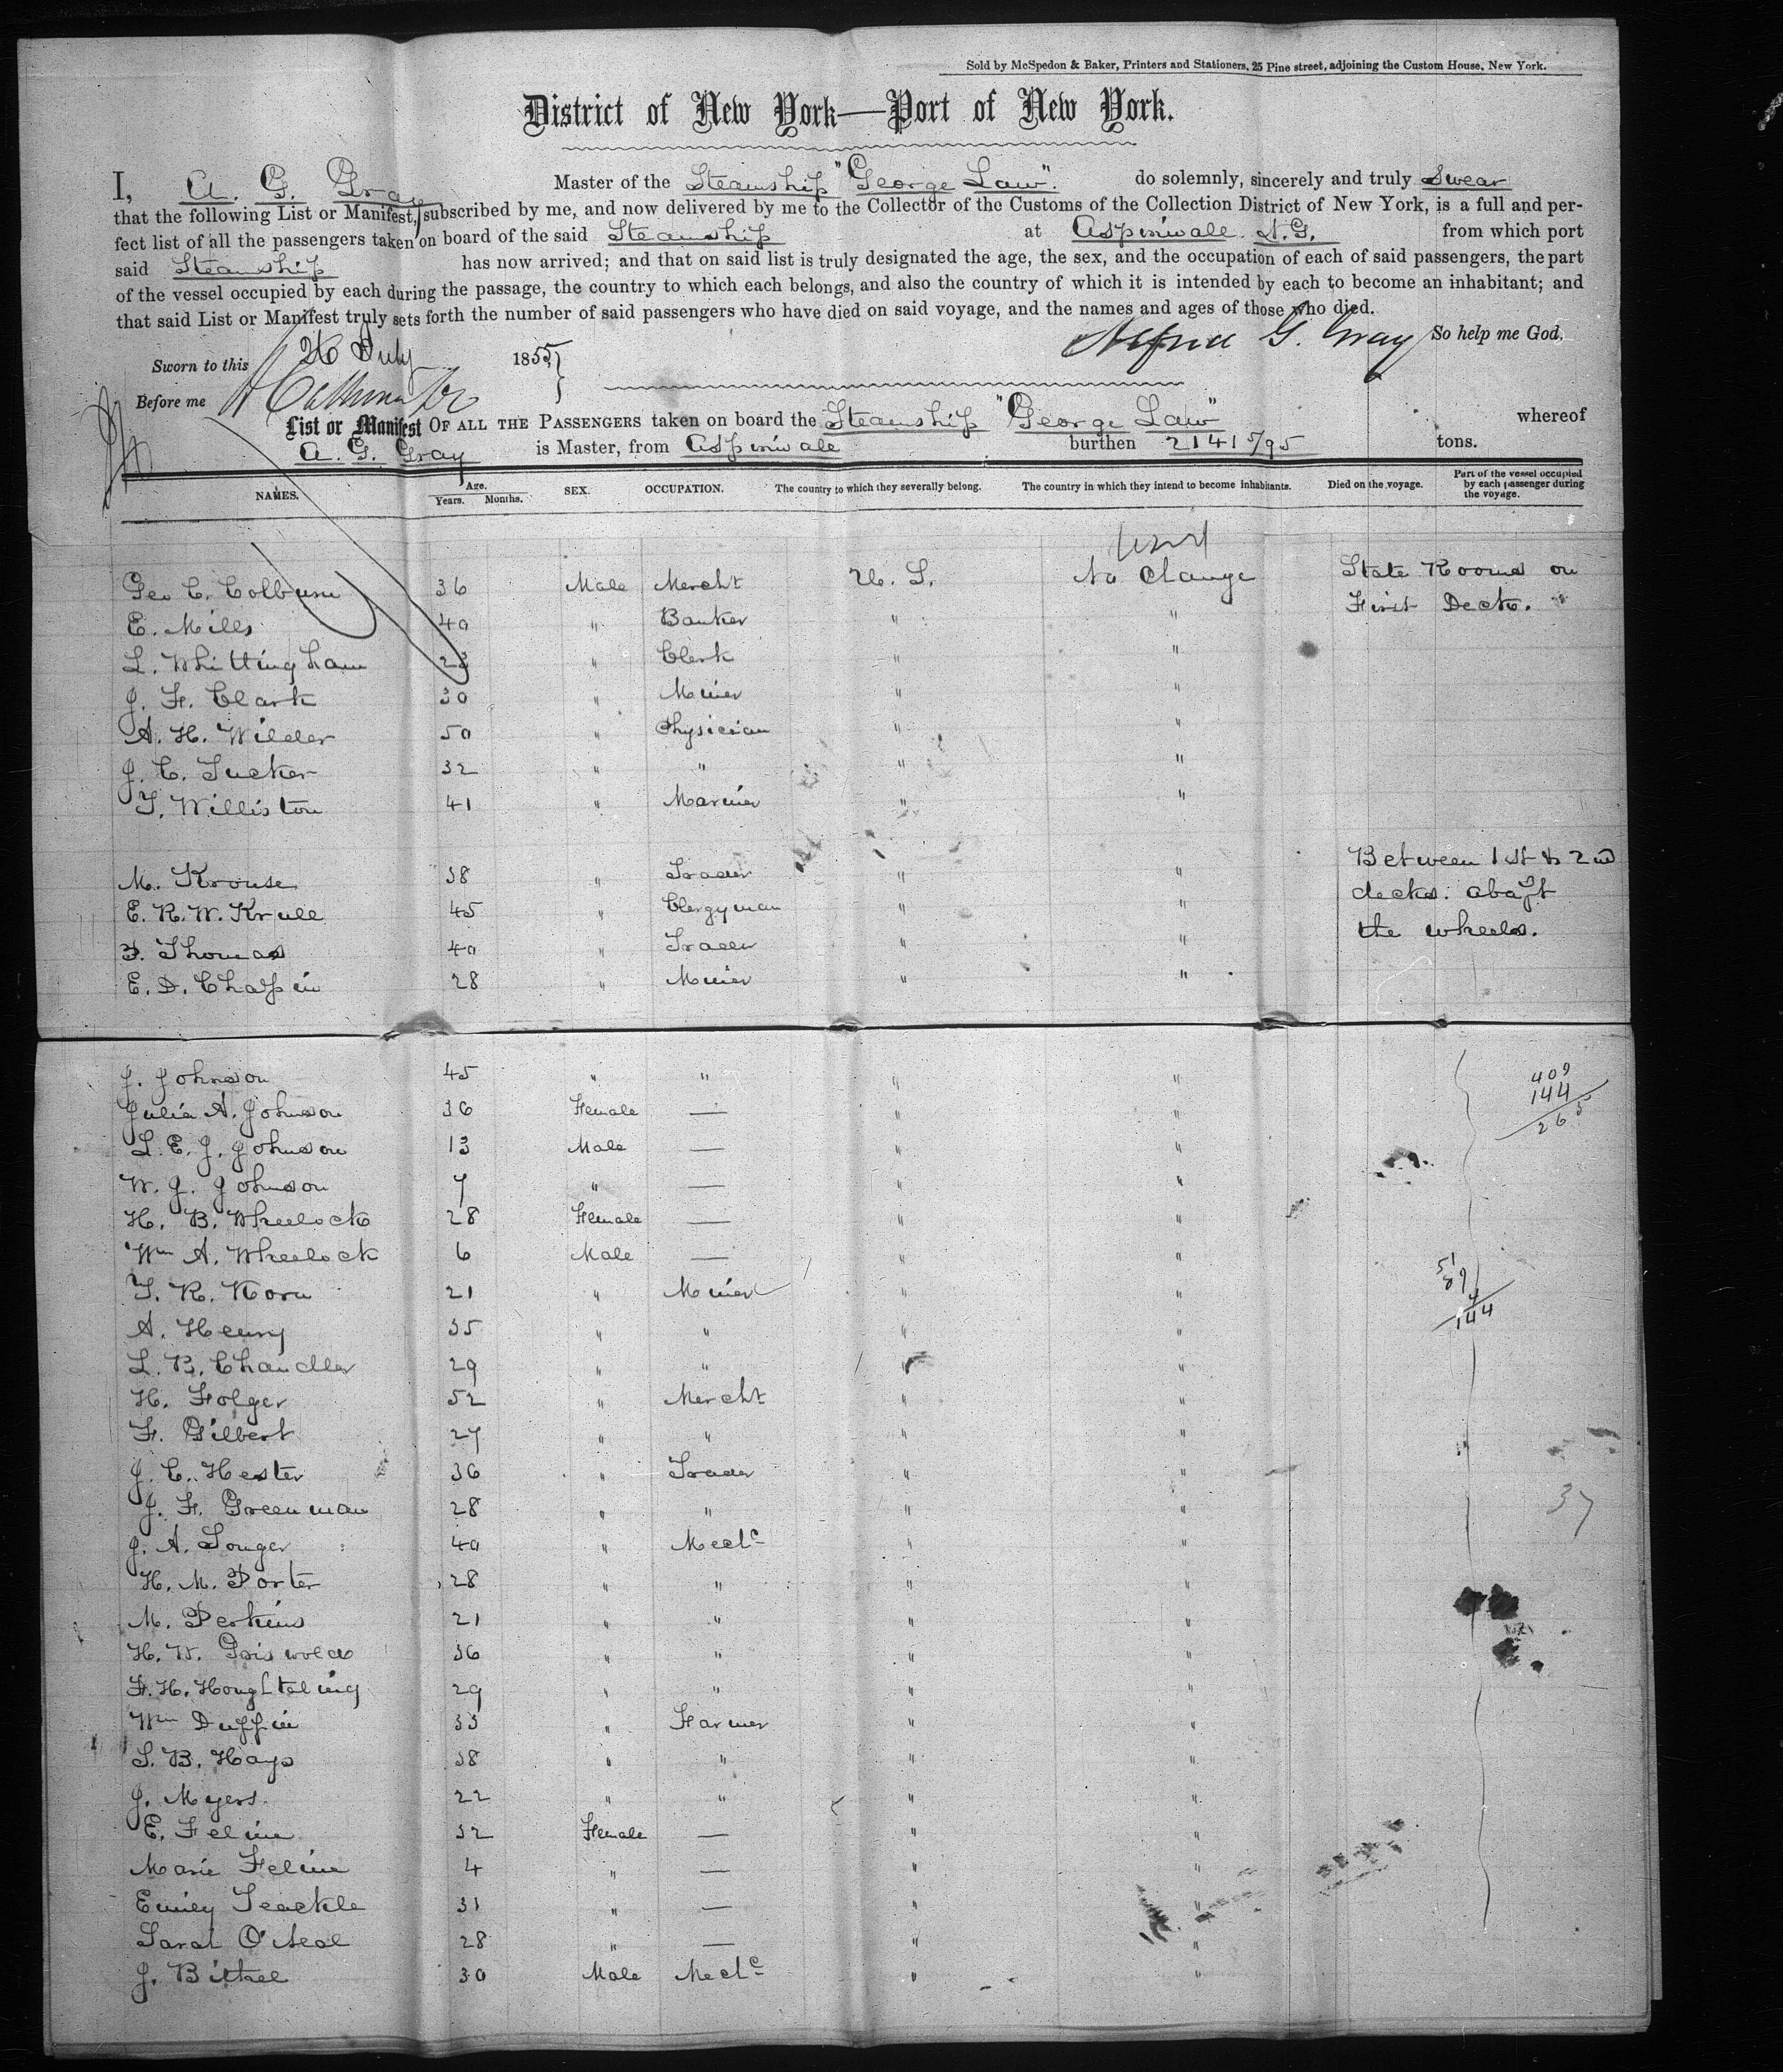 Sold by McSpedon & Baker, Printers and Stationers, 25 Pine street, adjoining the Custom House, New York.
District of New York—Port of New York.
I, A. G. Gray Master of the Steamship "George Law". do solemnly, sincerely and truly Swear
that the following List or Manifest, subscribed by me, and now delivered by me to the Collector of the Customs of the Collection District of New York, is a full and per-
fect list of all the passengers taken on board of the said Steamship at Aspinwall. N.G. from which port
said Steamship has now arrived; and that on said list is truly designated the age, the sex, and the occupation of each of said passengers, the part
of the vessel occupied by each during the passage, the country to which each belongs, and also the country of which it is intended by each to become an inhabitant; and
that said List or Manifest truly sets forth the number of said passengers who have died on said voyage, and the names and ages of those who died.
So help me God.
G. Gray
Sworn to this 26 July 1855
Before me
List or Manifest OF ALL THE PASSENGERS taken on board the Steamship "George Law" whereof
A. G. Gray is Master, from Aspinwall burthen 2141 5/95 tons.
NAMES. Age. Years. Months. SEX. OCCUPATION. The country to which they severally belong. The country in which they intend to become inhabitants. Died on the voyage. Part of the vessel occupied by each passenger during the voyage.
Geo C. Colburn 36 Male Mercht U. S. No Change State Rooms on
E. Mills 40 " Banker " " First Deck.
L. Whittingham 23 " Clerk " "
J. F. Clark 30 " Miner " "
A. H. Wilder 50 " Physician " "
J. C. Tucker 32 " " " "
T. Williston 41 " Mariner " "
M. Krouse 38 " Trader " " Between 1st & 2nd
E. R. W. Krull 45 " Clergyman " " decks. abaft
T. Thomas 40 " Trader " " the wheels.
E. D. Chapin 28 " Miner " "
J. Johnson 45 " " " "
Julia A. Johnson 36 Female — " "
L. E. J. Johnson 13 Male — " "
W. J. Johnson 7 " — " "
H. B. Wheelock 28 Female — " "
Wm A. Wheelock 6 Male — " "
T. R. Korn 21 " Miner " "
A. Henry 35 " " " "
L. B. Chandler 29 " " " "
H. Folger 52 " Mercht " "
F. Gilbert 27 " " " "
J. C. Hester 36 " Trader " "
J. F. Greenman 28 " " " "
J. A. Souger 40 " Mechc " "
H. M. Porter 28 " " " "
M. Perkins 21 " " " "
H. W. Griswold 36 " " " "
F. H. Houghtaling 29 " " " "
Wm Duffin 33 " Farmer " "
S. B. Hays 38 " " " "
J. Myers 22 " " " "
E. Feline 32 Female — " "
Marie Feline 4 " — " "
Emily Teackle 31 " — " "
Sarah O'Neal 28 " — " "
J. Bithel 30 Male Mechc " "
409
144
265
51
89
4
144
37